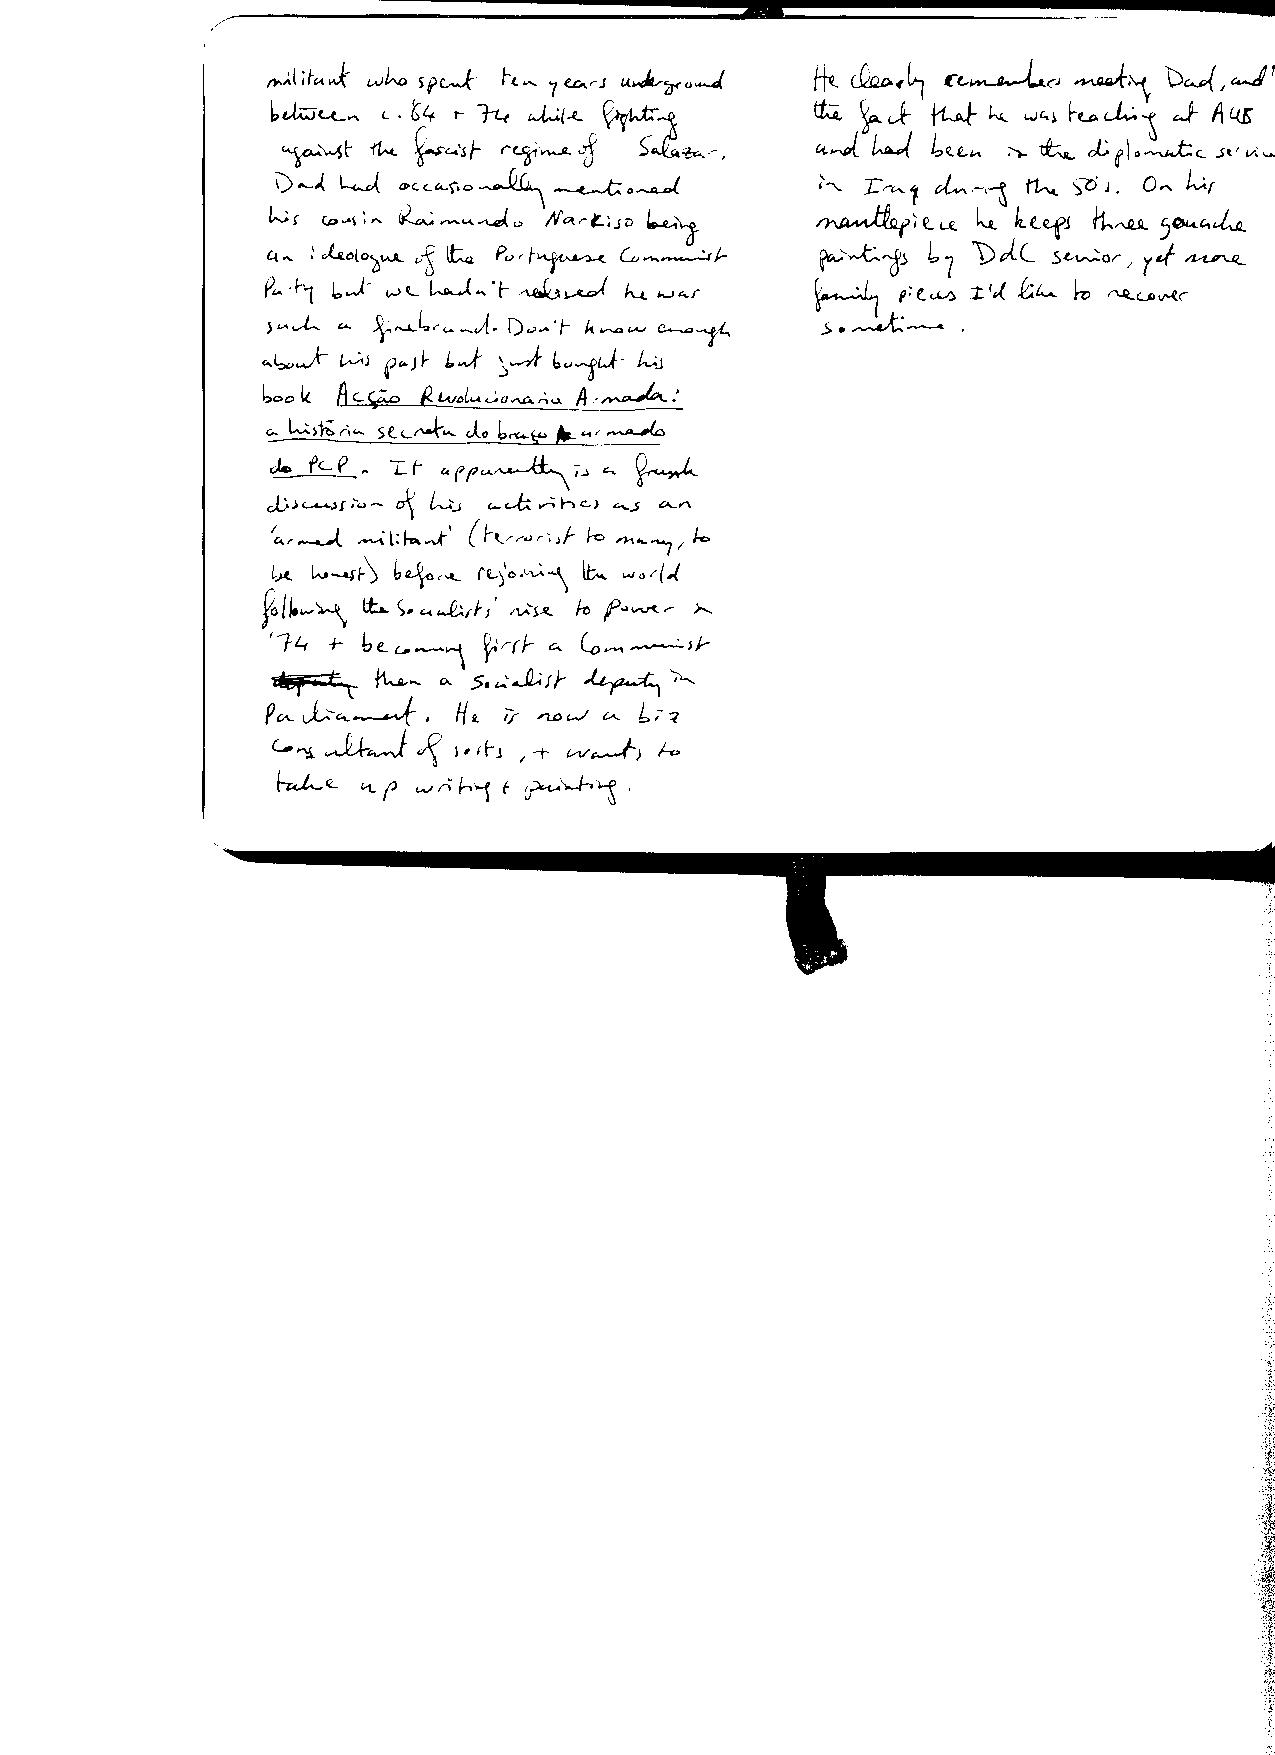 militant who spent ten years underground
between c. '64 + 74 while fighting
against the fascist regime of Salazar.
Dad had occasionally mentioned
his cousin Raimundo Narciso being
an ideologue of the Portuguese Communist
Party but we hadn't he was
such a firebrand. Don't know enough
about his past but just bought his
book Acção Revolucionaria Armada:
a história secreta do braço armado
do PCP. It apparently is a frank
discussion of his activities as an
'armed militant' (terrorist to many, to
be honest) before rejoining the world
following the Socialists' rise to power in
'74 + becoming first a Communist
deputy then a Socialist deputy in
Parliament. He is now a biz
consultant of sorts, + wants to
take up writing + painting.
He clearly remembers meeting Dad, and
the fact that he was teaching at AUB
and had been in the diplomatic service
in Iraq during the 50's. On his
mantlepiece he keeps three gouache
paintings by DdC senior, yet more
family pieces I'd like to recover
sometime.